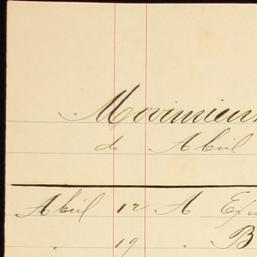 Movimien
de Abril
Abril 12 A
" 19 " B